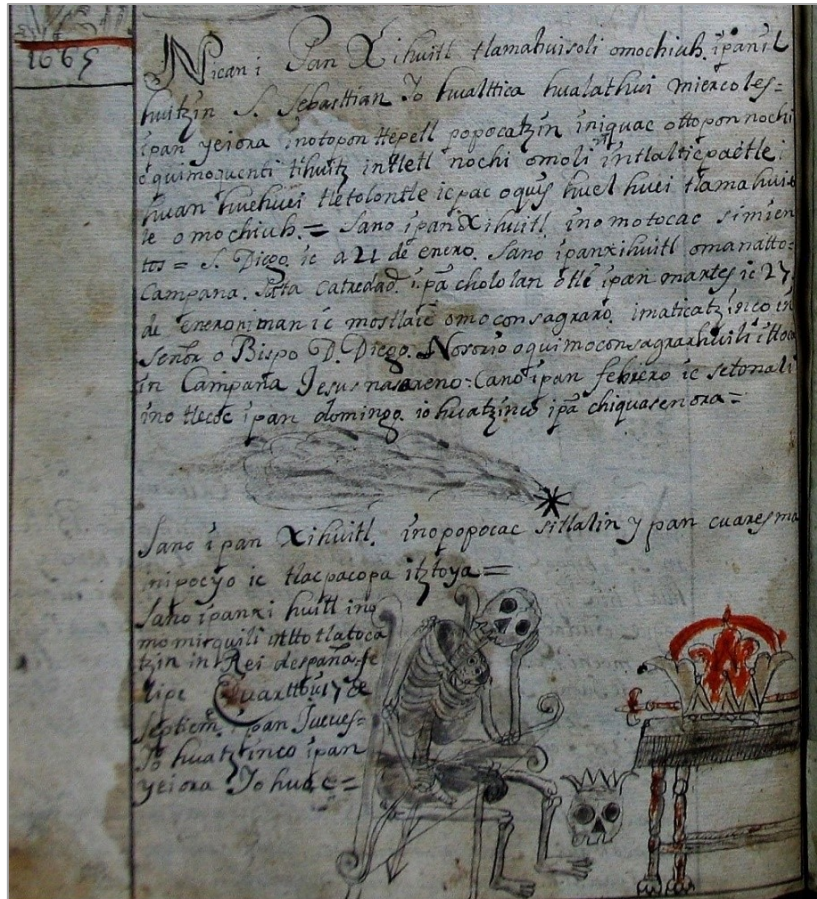 1665
Nican i Pan Xihuitl tlamahuisoli omochiuh. ipanil
huitzin S. Sebasttian Io hualttica hualathui miercoles=
ipan yeiora inotopon ttepell popocatzin iniquac ottopon nochi
oquimoquenti tihuitz intletl nochi omolini intlalticpactle:
huan huehuei tletolontle icpac oquis huel huei tlamahuiso
le omochiuh.= Sano ipan Xihuitl. inomotocac simien
tos = S. Diego. ic a 21 de enero. Sano ipanxihuitl omanatto=
Campana. Sitta Catredad. ipā chololan otle ipan martes ic 27.
de Enero niman ic mostlaic omoconsagraro. imaticatzinco in
Señor oBispo D. Diego. Nosorio oquimoconsagrarhuili ittoca
in Campana Jesus nasareno: Cano ipan febrero ic setonali
ino tlecoc ipan domingo. iohuatzinco ipā chiquasen ora=
Sano ipan Xihuitl. inopopocac sitlalin ypan cuaresma
inipocyo ic tlacpacopa itztoya=
Sano ipanxi huitl ino
momiquili intto tlatoca
tzin in Rei despaña, fe
lipe Cuartto, 17 de
septiem. ipan Jueves=
Io huatzinco ipan
yeiora Io huac=